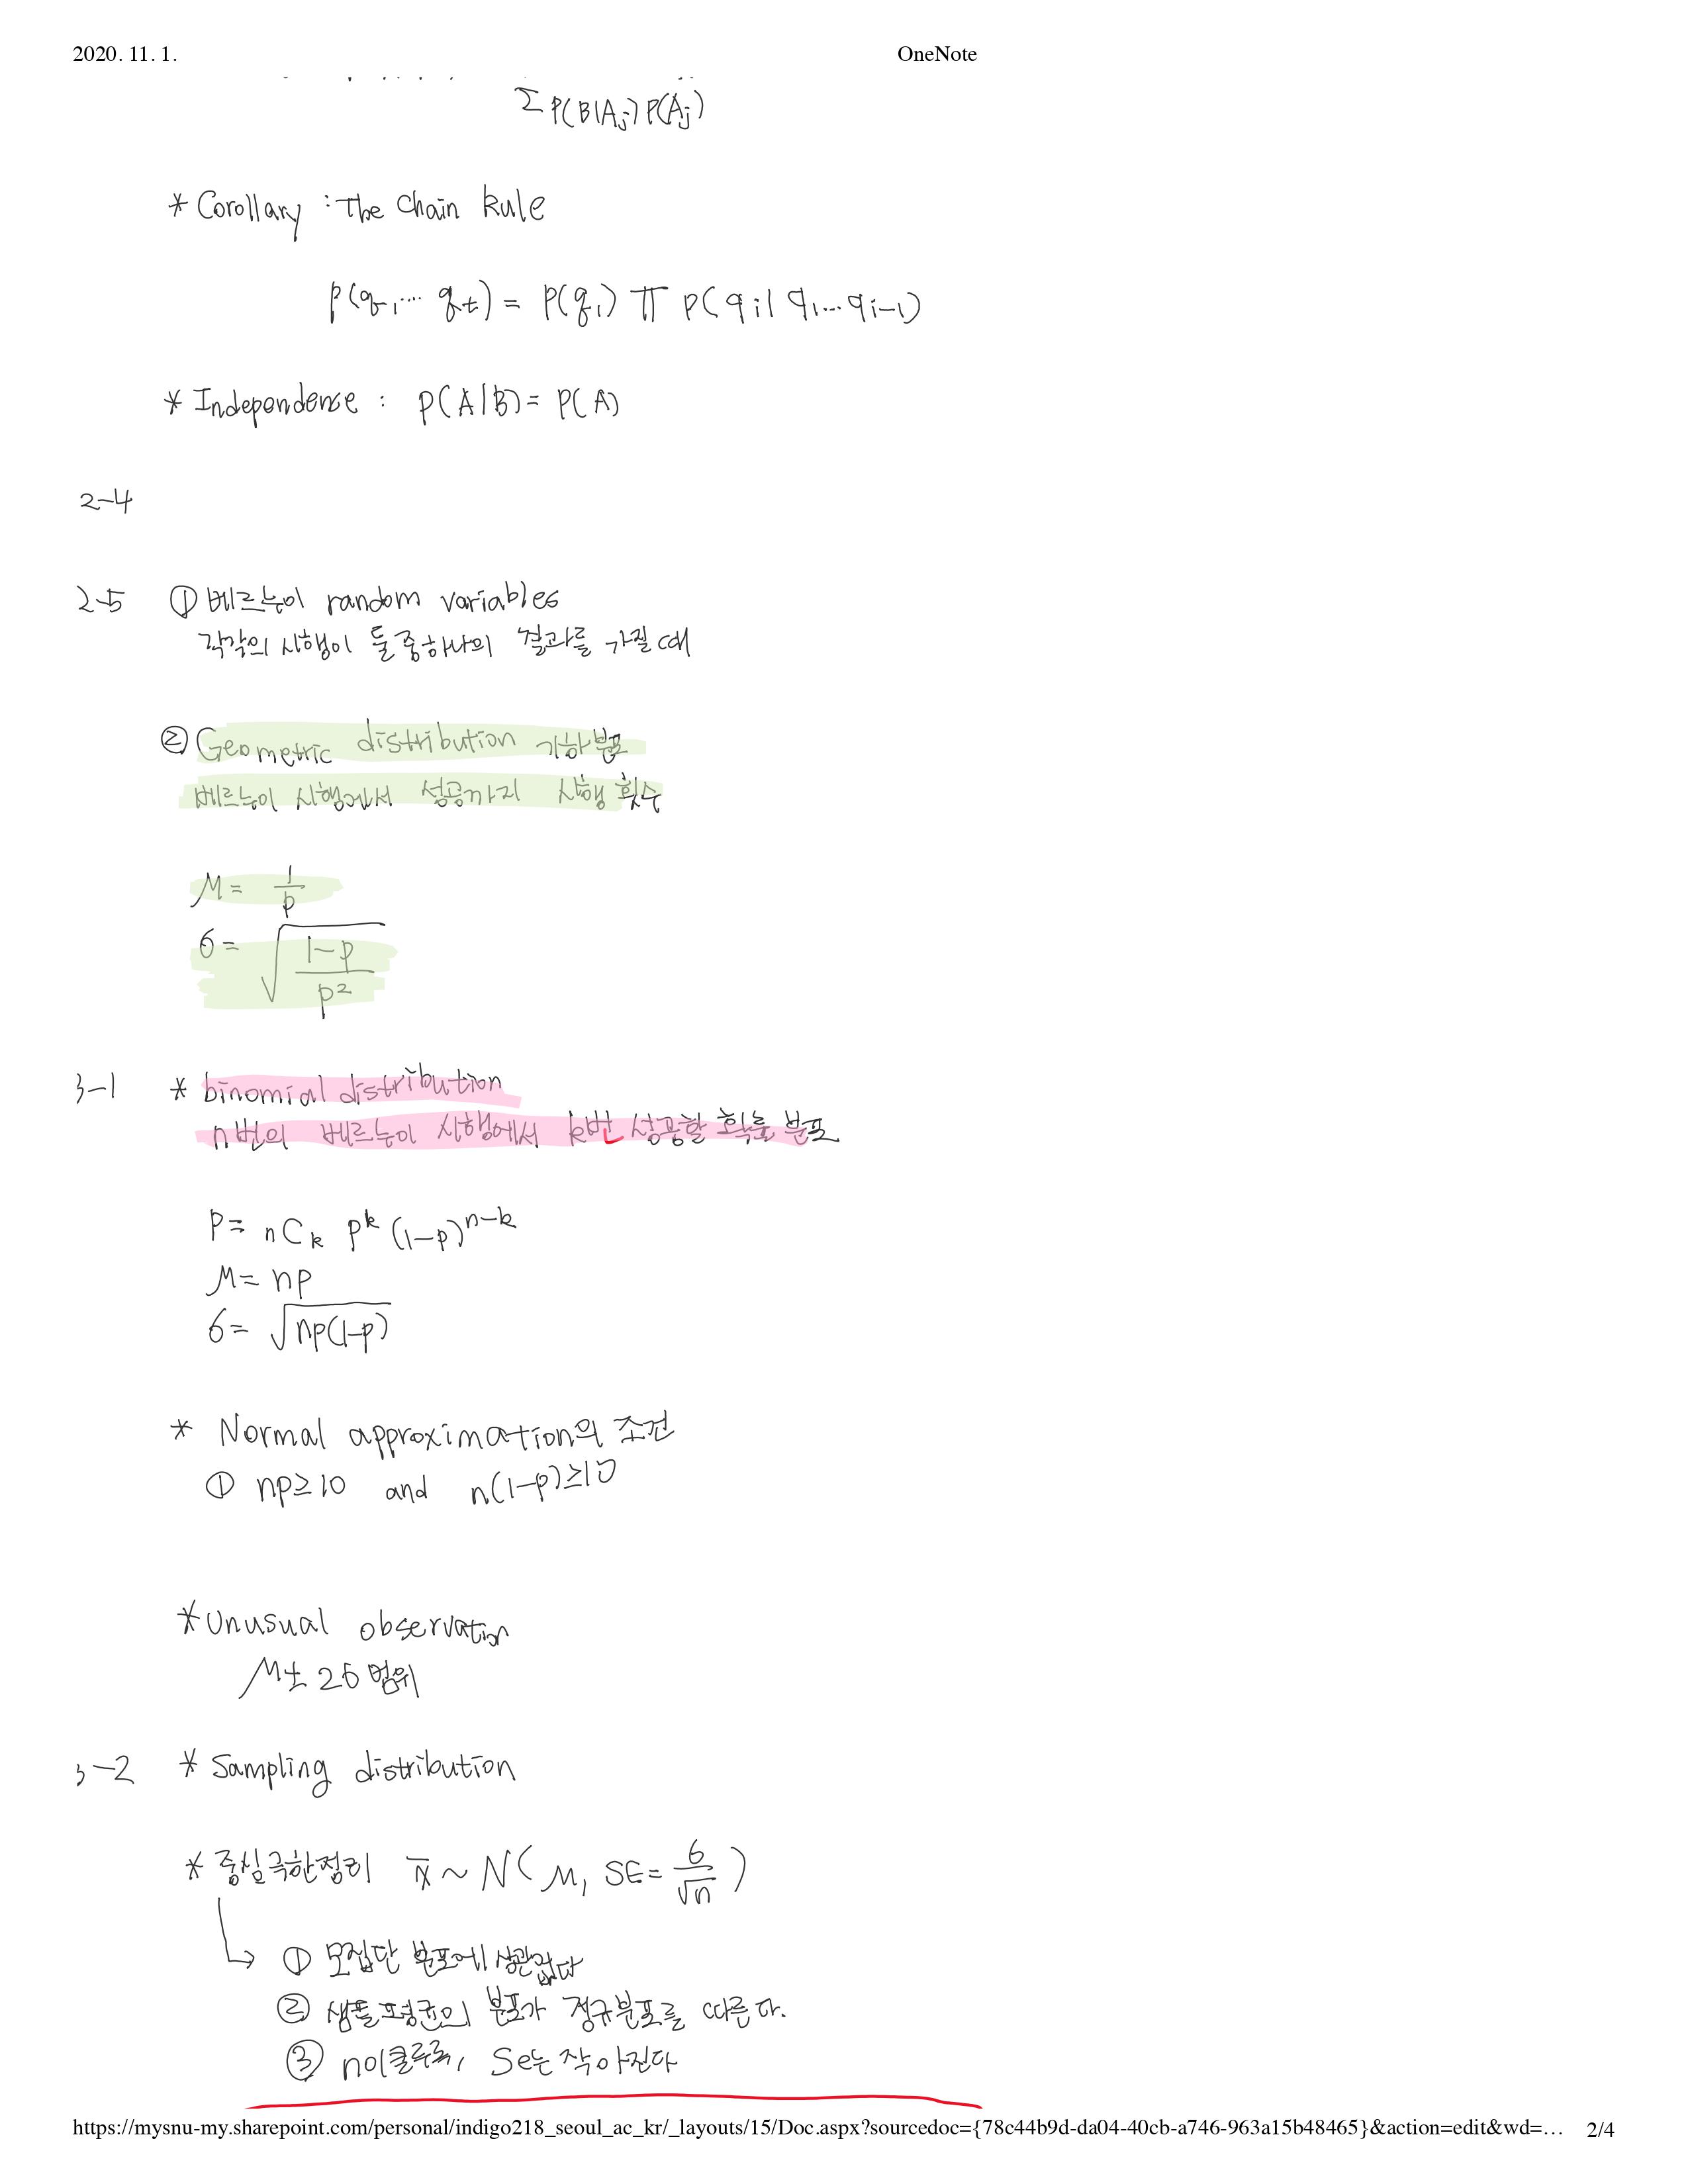 2020. 11. 1. OneNote
Σ P(B|Aj) P(Aj)
* Corollary : The Chain Rule
P(q1, ... qt) = P(q1) Π P(qi| q1...qi-1)
* Independence : P(A|B) = P(A)
2-4
2-5 ① 베르누이 random variables
각각의 시행이 둘 중 하나의 결과를 가질 때
② Geometric distribution 기하분포
베르누이 시행에서 성공까지 시행 횟수
μ = 1/p
σ = √((1-p)/p²)
3-1 * binomial distribution
n번의 베르누이 시행에서 k번 성공할 확률 분포
P = nCk p^k (1-p)^(n-k)
μ = np
σ = √(np(1-p))
* Normal approximation의 조건
① np≥10 and n(1-p)≥10
* Unusual observation
μ ± 2σ 범위
3-2 * Sampling distribution
* 중심극한정리 x̄ ~ N( μ, SE = σ/√n )
↳ ① 모집단 분포에 상관없다
② 샘플평균의 분포가 정규분포를 따른다.
③ n이 클루록, Se는 작아진다
https://mysnu-my.sharepoint.com/personal/indigo218_seoul_ac_kr/_layouts/15/Doc.aspx?sourcedoc={78c44b9d-da04-40cb-a746-963a15b48465}&action=edit&wd=… 2/4